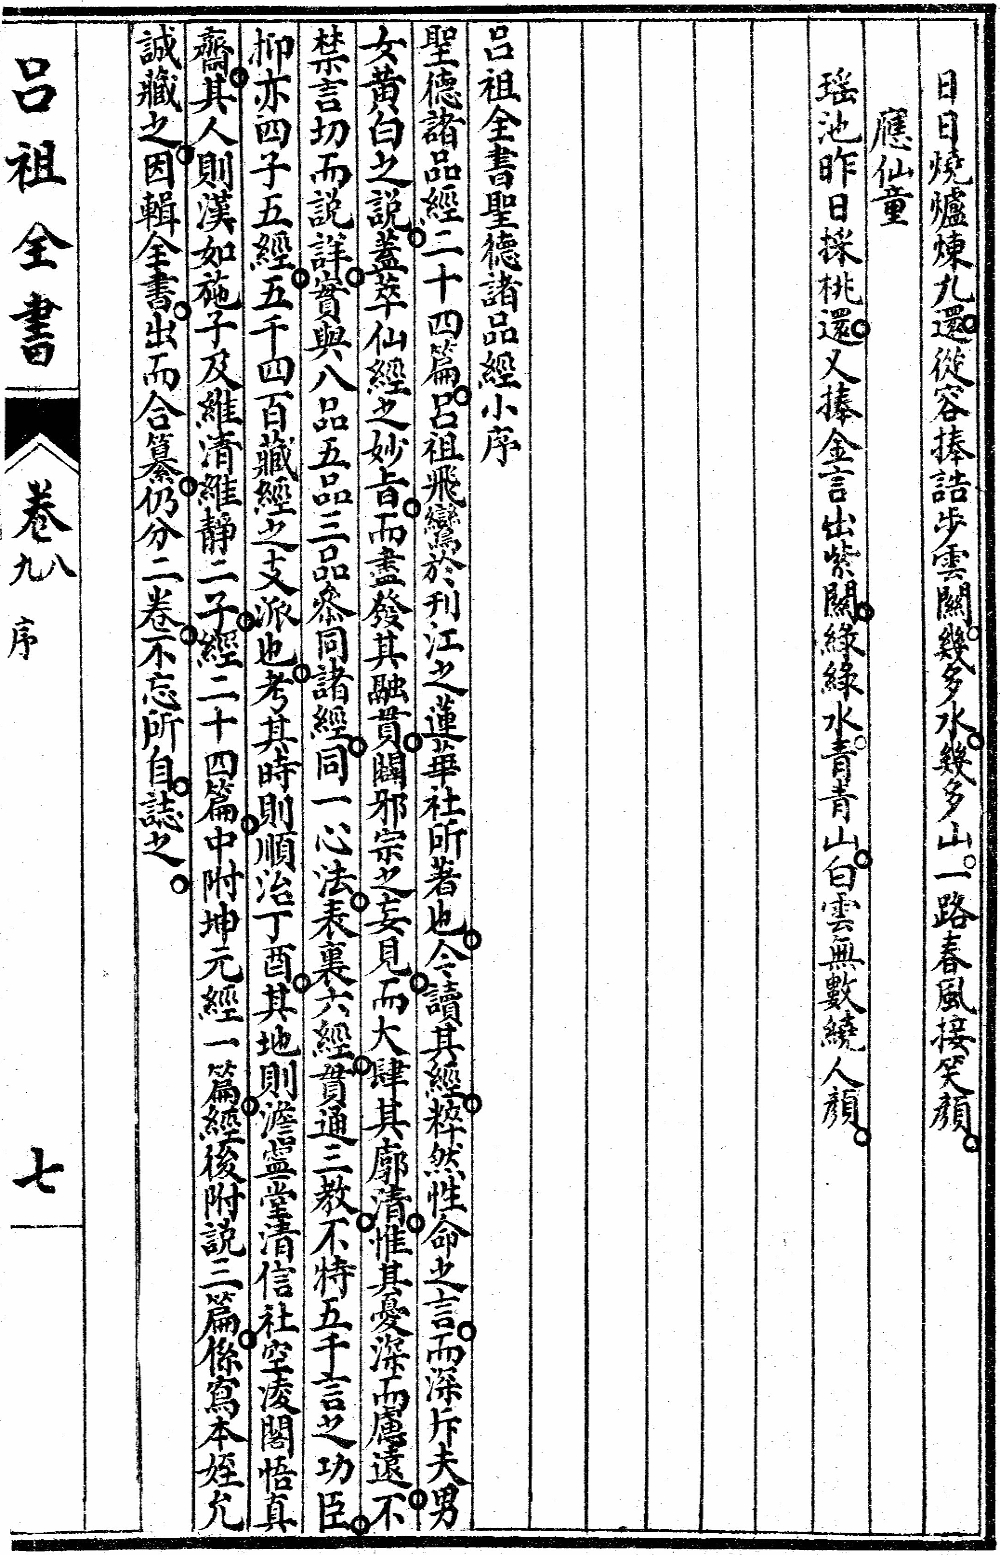 日日燒爐煉九還。從容捧誥步雲關。幾多水。幾多山。一路春風接笑顏。
應仙童
瑤池昨日採桃還。又捧金言出紫關。綠綠水。青青山。白雲無數繞人顏。
呂祖全書聖德諸品經小序
聖德諸品經二十四篇。呂祖飛鸞於刊江之蓮華社所著也。今讀其經。粹然性命之言。而深斥夫男
女黃白之說。蓋萃仙經之妙旨。而盡發其融貫。闢邪宗之妄見。而大肆其廓清。惟其憂深而慮遠。不
禁言切而說詳。實與八品五品三品參同諸經。同一心法。表裏六經。貫通三教。不特五千言之功臣。
抑亦四子五經。五千四百藏經之支派也。考其時則順治丁酉。其地則澹靈堂清信社空凌閣悟真
齋。其人則漢如施子及維清維靜二子。經二十四篇。中附坤元經一篇。經後附說三篇。係寫本姪允
誠藏之。因輯全書。出而合纂。仍分二卷。不忘所自。誌之。
呂祖全書
卷八九
序
七